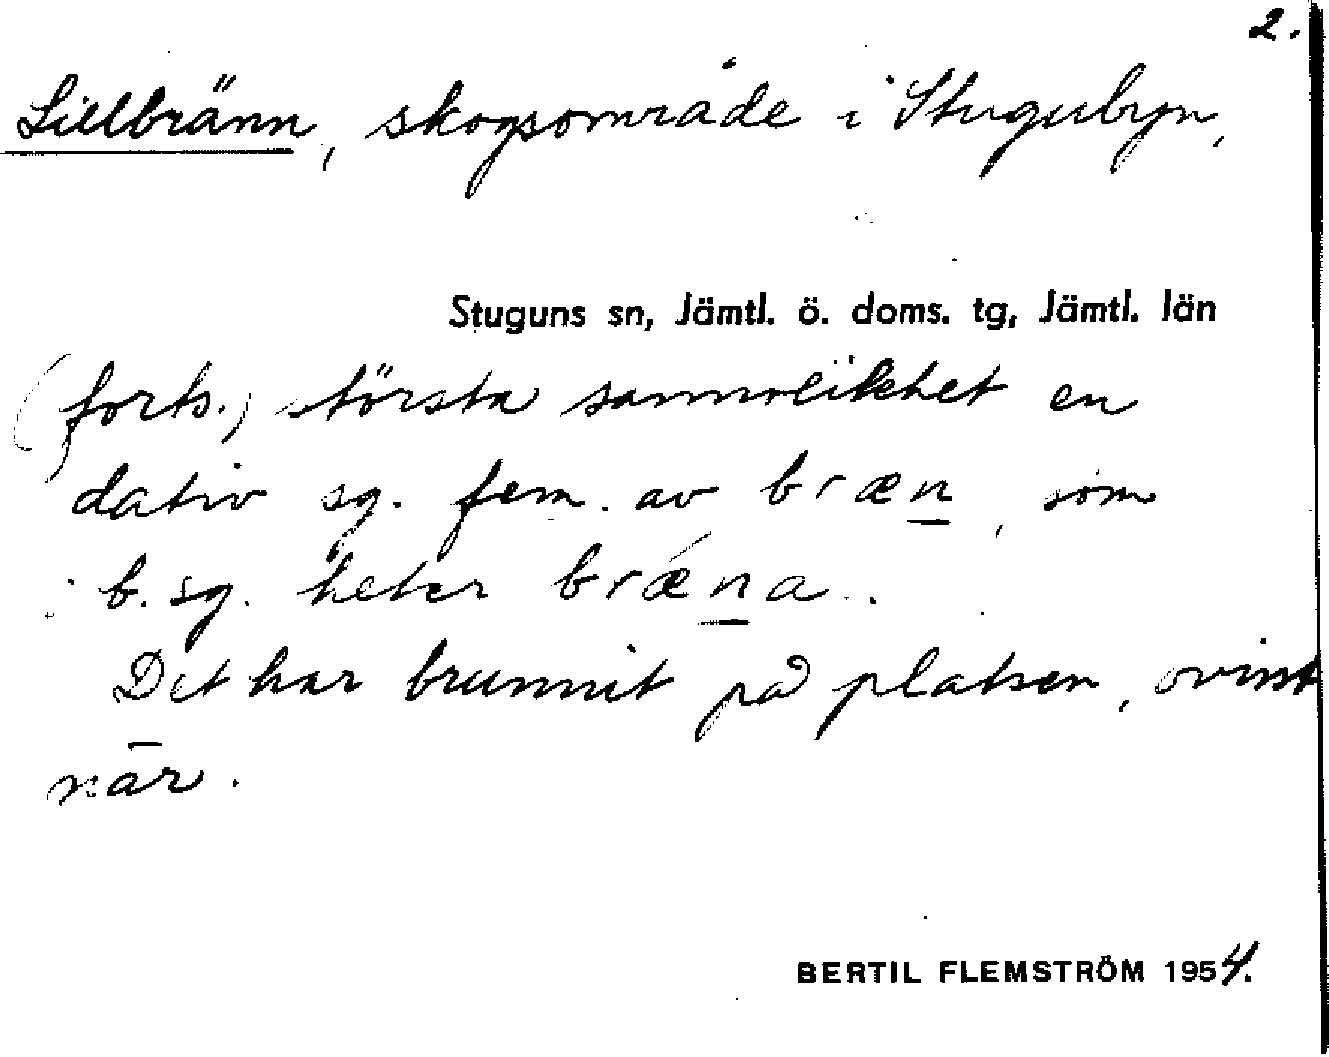 2.
Lillbränn, skogsområde i Stugubyn,
Stuguns sn, Jämtl. ö. doms. tg, Jämtl. län
(forts.) största sannolikhet en
dativ sg. fem. av bræn, som
i b. sg. heter brǽna.
Det har brunnit på platsen, ovisst
när.
BERTIL FLEMSTRÖM 1954.